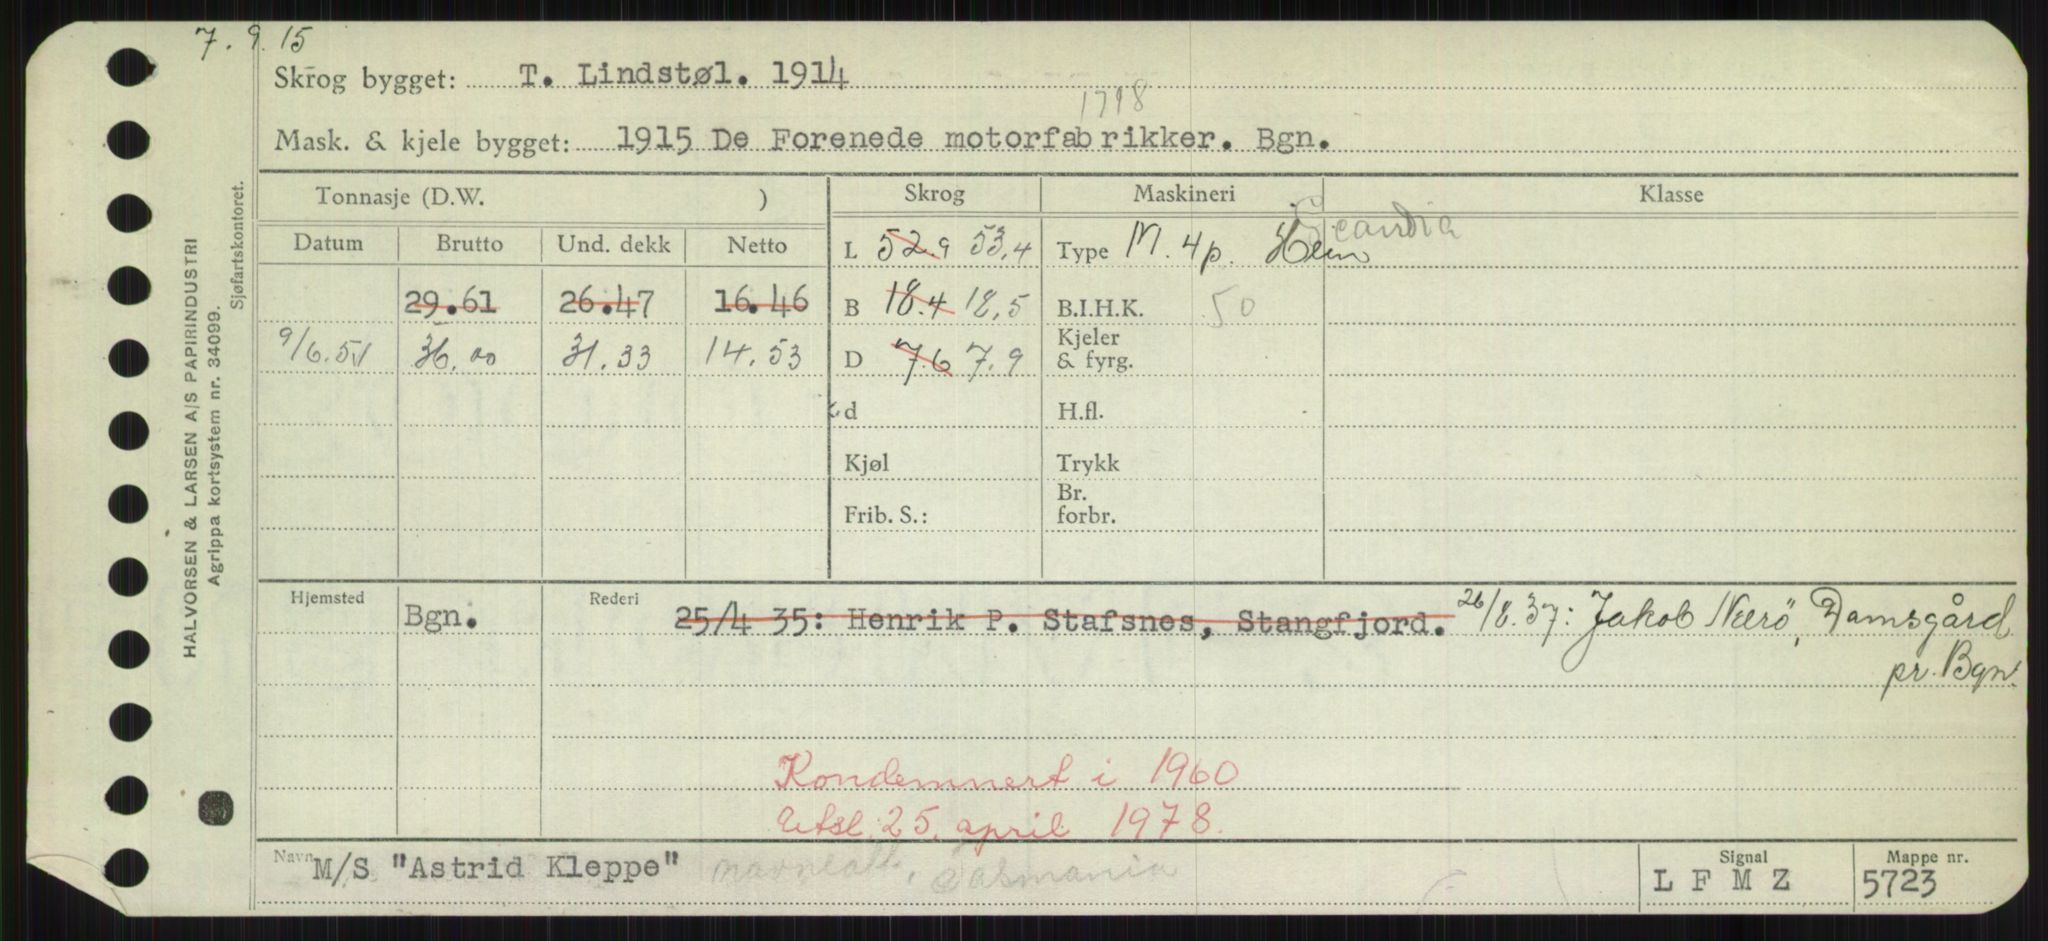 7. 9. 15
Skrog bygget: T. Lindstøl. 1914
Mask. & kjele bygget: 1915 De Forenede motorfabrikker. Bgn.
Tonnasje (D.W. ) Skrog Maskineri Klasse
Datum Brutto Und. dekk Netto L 52.9 53,4 Type M. 4p. Scandia
29.61 26.47 16.46 B 18.4 18,5 B.I.H.K. 50
9/6.51 36,00 31.33 14.53 D 7.6 7.9 Kjeler & fyrg.
d H.fl.
Kjøl Trykk
Frib. S.: Br. forbr.
Hjemsted Bgn. Rederi 25/4 35: Henrik P. Stafsnes, Stangfjord. 26/8.37: Jakob Nærö, Damsgård
pr. Bgn.
Kondemnert i 1960
25. april 1978.
Navn M/S "Astrid Kleppe" Tasmania Signal L F M Z Mappe nr. 5723
HALVORSEN & LARSEN A/S PAPIRINDUSTRI
Agrippa kortsystem nr. 34099.
Sjøfartskontoret.